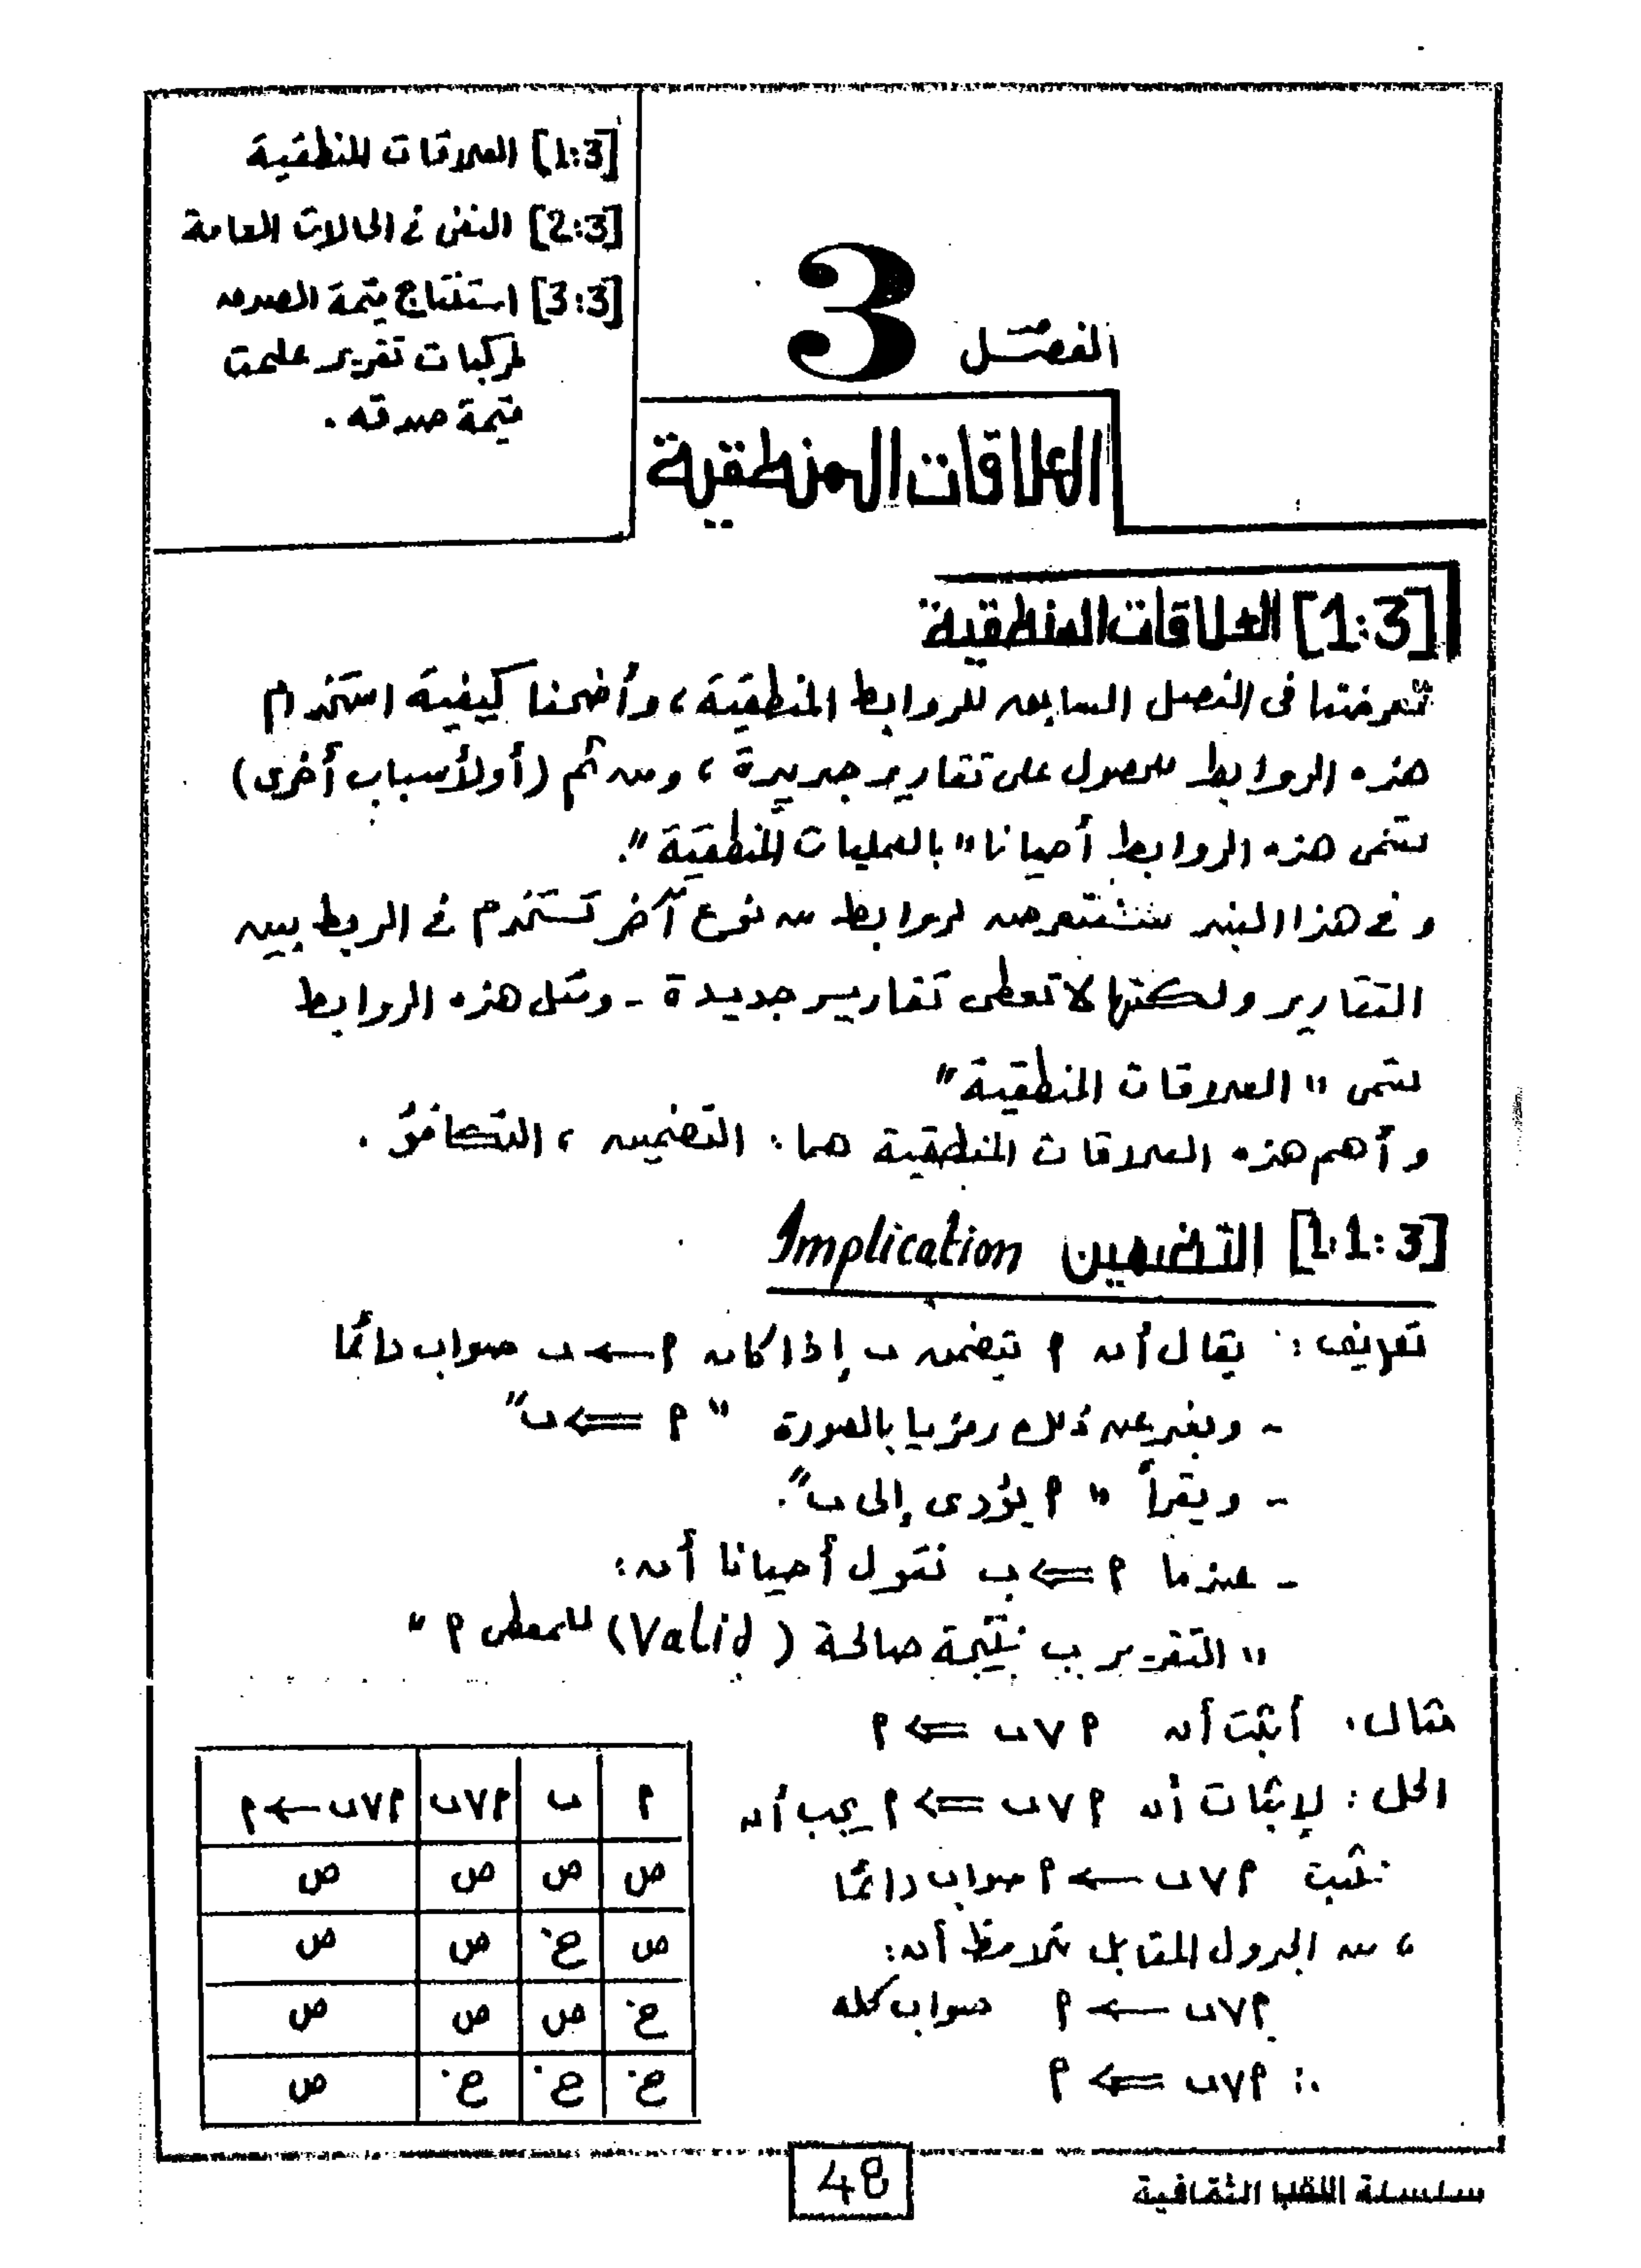 [1:3] العلاقات المنطقية
[2:3] النفى فى الحالات العامة
[3:3] استنتاج قيمة الصدق
لمركبات تقرير علمت
قيمة صدقه .
الفصل 3
العلاقات المنطقية
[1:3] العلاقات المنطقية
تعرضنا فى الفصل السابق للروابط المنطقية ، وأوضحنا كيفية استخدام
هذه الروابط للحصول على تقارير جديدة ، ومن ثم (أو لأسباب أخرى)
تسمى هذه الروابط أحيانا " بالعمليات المنطقية ".
وفى هذا البند سنتعرض لروابط من نوع آخر تستخدم فى الربط بين
التقارير ولكنها لا تعطى تقارير جديدة - ومثل هذه الروابط
تسمى " العلاقات المنطقية "
وأهم هذه العلاقات المنطقية هما : التضمين ، التكافؤ .
[1،1:3] التضمين Implication
تعريف : يقال أن P تتضمن ب إذا كان P ← ب صواب دائمًا
- ويعبر عن ذلك رمزيا بالصورة " P ⇐ ب "
- ويقرأ " P يؤدى إلى ب ".
- عندما P ⇐ ب نقول أحيانا أن :
" التقرير ب نتيجة صالحة (Valid) للمعطى P "
مثال : أثبت أن P ∨ ب ⇐ P
الحل : لإثبات أن P ∨ ب ⇐ P يجب أن
نثبت P ∨ ب ← P صواب دائمًا
، من الجدول المقابل نلاحظ أن :
P ∨ ب ← P صواب كله
∴ P ∨ ب ⇐ P
P | ب | P ∨ ب | P ∨ ب ← P
ص | ص | ص | ص
ص | خ | ص | ص
خ | ص | ص | ص
خ | خ | خ | ص
48
سلسلة الثقافية